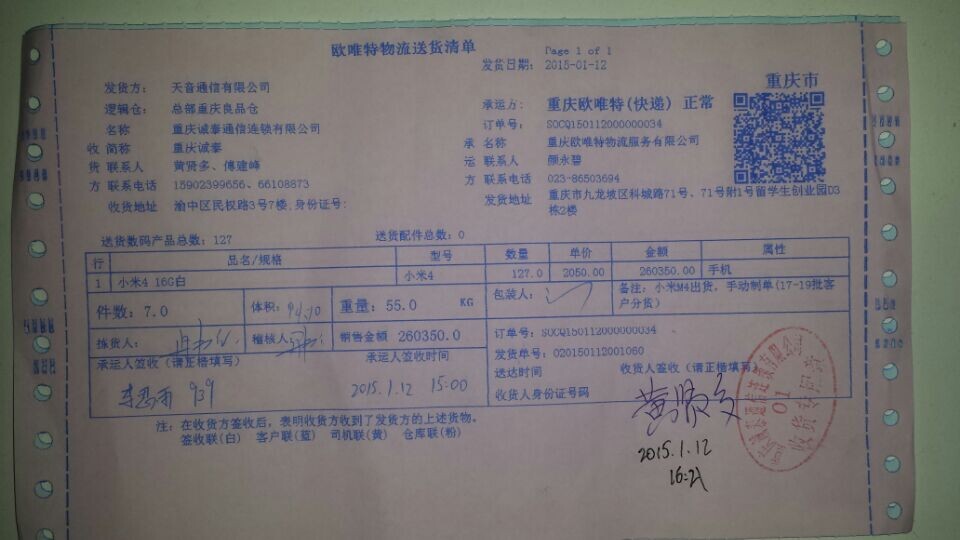 欧唯特物流送货清单
Page 1 of 1
发货日期: 2015-01-12
重庆市
发货方: 天音通信有限公司
逻辑仓: 总部重庆良品仓
承运方: 重庆欧唯特(快递) 正常
名称 重庆诚泰通信连锁有限公司
订单号: SOCQ150112000000034
收 简称 重庆诚泰
承 名称 重庆欧唯特物流服务有限公司
货 联系人 黄贤多、傅建峰
运 联系人 颜永碧
方 联系电话 15902399656、66108873
方 联系电话 023-86503694
收货地址 渝中区民权路3号7楼,身份证号:
发货地址 重庆市九龙坡区科城路71号、71号附1号留学生创业园D3
栋2楼
送货数码产品总数: 127 送货配件总数: 0
行 品名/规格 型号 数量 单价 金额 属性
1 小米4 16G白 小米4 127.0 2050.00 260350.00 手机
件数: 7.0 体积: 重量: 55.0 KG 包装人:
备注: 小米M4出货, 手动制单(17-19批客
户分货)
拣货人: 稽核人 销售金额 260350.0
订单号: SOCQ150112000000034
发货单号: 020150112001060
承运人签收 (请正楷填写) 承运人签收时间
送达时间 收货人签收 (请正楷填写)
939 2015.1.12 15:00
收货人身份证号码
黄贤多
2015.1.12
16:21
01
注: 在收货方签收后, 表明收货方收到了发货方的上述货物。
签收联(白) 客户联(蓝) 司机联(黄) 仓库联(粉)